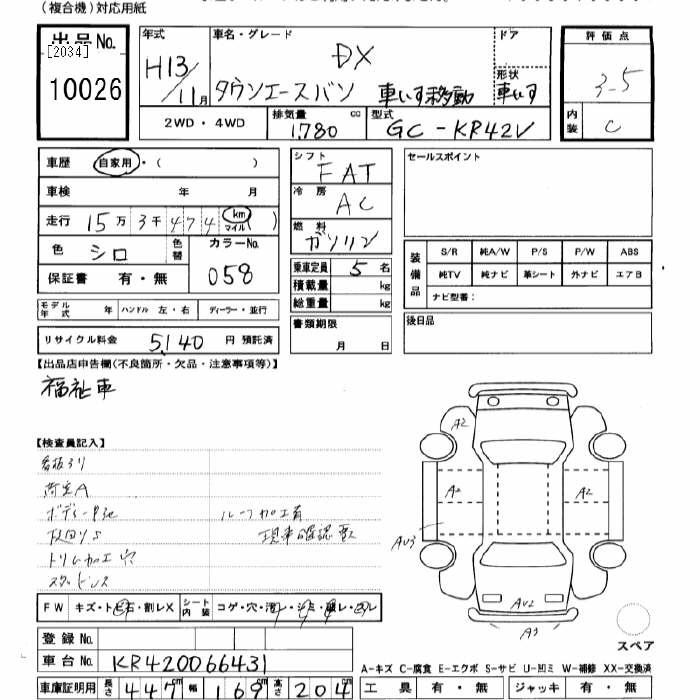 (複合機)対応用紙
出品No.
[2034]
10026
年式
H13/11月
車名・グレード
DX
タウンエースバン 車いす移動
ドア
形状
車いす
評価点
3.5
内装
C
2WD・4WD
排気量
1,780 cc
型式
GC-KR42V
車歴 自家用・( )
車検 年 月
走行 15万3千474 km マイル ( )
色 シロ 色替
カラーNo.
058
保証書 有・無
モデル年式 年 ハンドル 左・右 ディーラー・並行
リサイクル料金 5,140 円 預託済
シフト
FAT
冷房
AC
燃料
ガソリン
乗車定員 5 名
積載量 kg
総重量 kg
書類期限
月 日
セールスポイント
装備品
S/R 純A/W P/S P/W ABS
純TV 純ナビ 革シート 外ナビ エアB
ナビ型番:
後日品
【出品店申告欄(不良箇所・欠品・注意事項等)】
福祉車
【検査員記入】
ルーフ加工有
現車確認要
トリム加工穴
FW キズ・トビ石・割レX シート内装 コゲ・穴・汚レ・シミ・破レ・スレ
A2
A2
A2
AU3
AU2
A3
スペア
登録No.
車台No. KR420066431
A-キズ C-腐食 E-エクボ S-サビ U-凹ミ W-補修 XX-交換済
車庫証明用 長さ 447cm 幅 169cm 高さ 204cm
工具 有・無 ジャッキ 有・無